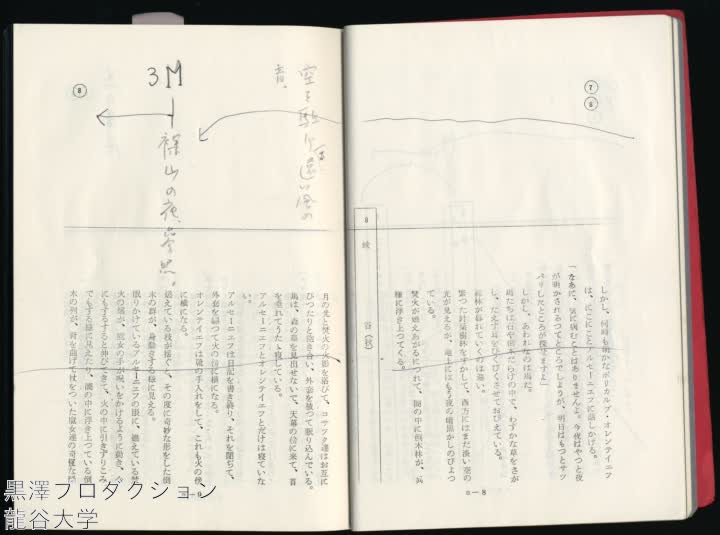 ⑦
⑧
しかし、何時も朗かなポリカルプ・オレンティエフ
は、にこにことアルセーニエフに話しかける。
「なあに、気に病むことはありませんよ。今夜はやつと夜
が明かされるつてところでしようが、明日はもつとサッ
パリしたところが探せますよ」
しかし、あわれなのは馬だ。
馬たちは石や倒木だらけの中で、わずかな草をさが
し、たえず耳をぴくぴくさせておびえている。
森林が暮れていく行は暗い。
繁つた針葉樹林をすかして、西方にはまだ淡い空の
光が見えるが、地上にはもう夜の暗黒がしのびよつ
ている。
焚火が燃えあがるにつれて、闇の中に倒木林が、兵
様に浮き上つてくる。
8 峡谷(夜)
8—8
空を駈ける遠い風の
音。
3M
裸山の夜、
⑧
月の光と焚火の火影を浴びて、コサツク達はお互に
ぴつたりと抱き合い、外套を被つて眠り込んでいる。
馬は、森の草を見出せないで、天幕の傍に来て、首
を垂れてうたた寝している。
アルセーニエフとオレンティエフとだけは寝ていな
い。
アルセーニエフは日記を書き終り、それを閉ぢて、
外套を纏つて火の傍に横になる。
オレンティエフは靴の手入れをして、これも火の傍
に横になる。
燃えている枝が揺らぐと、その度に奇妙な形をした倒
木の群が、身動きする様に見える。
眠りかけているアルセーニエフの眼に、燃えている焚
火の焔が、魔女の手が呪いをかけるように動き、今
にもするすると伸びてきて、火の中に引きずりこみ
でもする様に見えたり、闇の中に浮き上つている倒
木の列が、背を曲げて杖をついた魔女達の奇怪な
黒澤プロダクション
龍谷大学